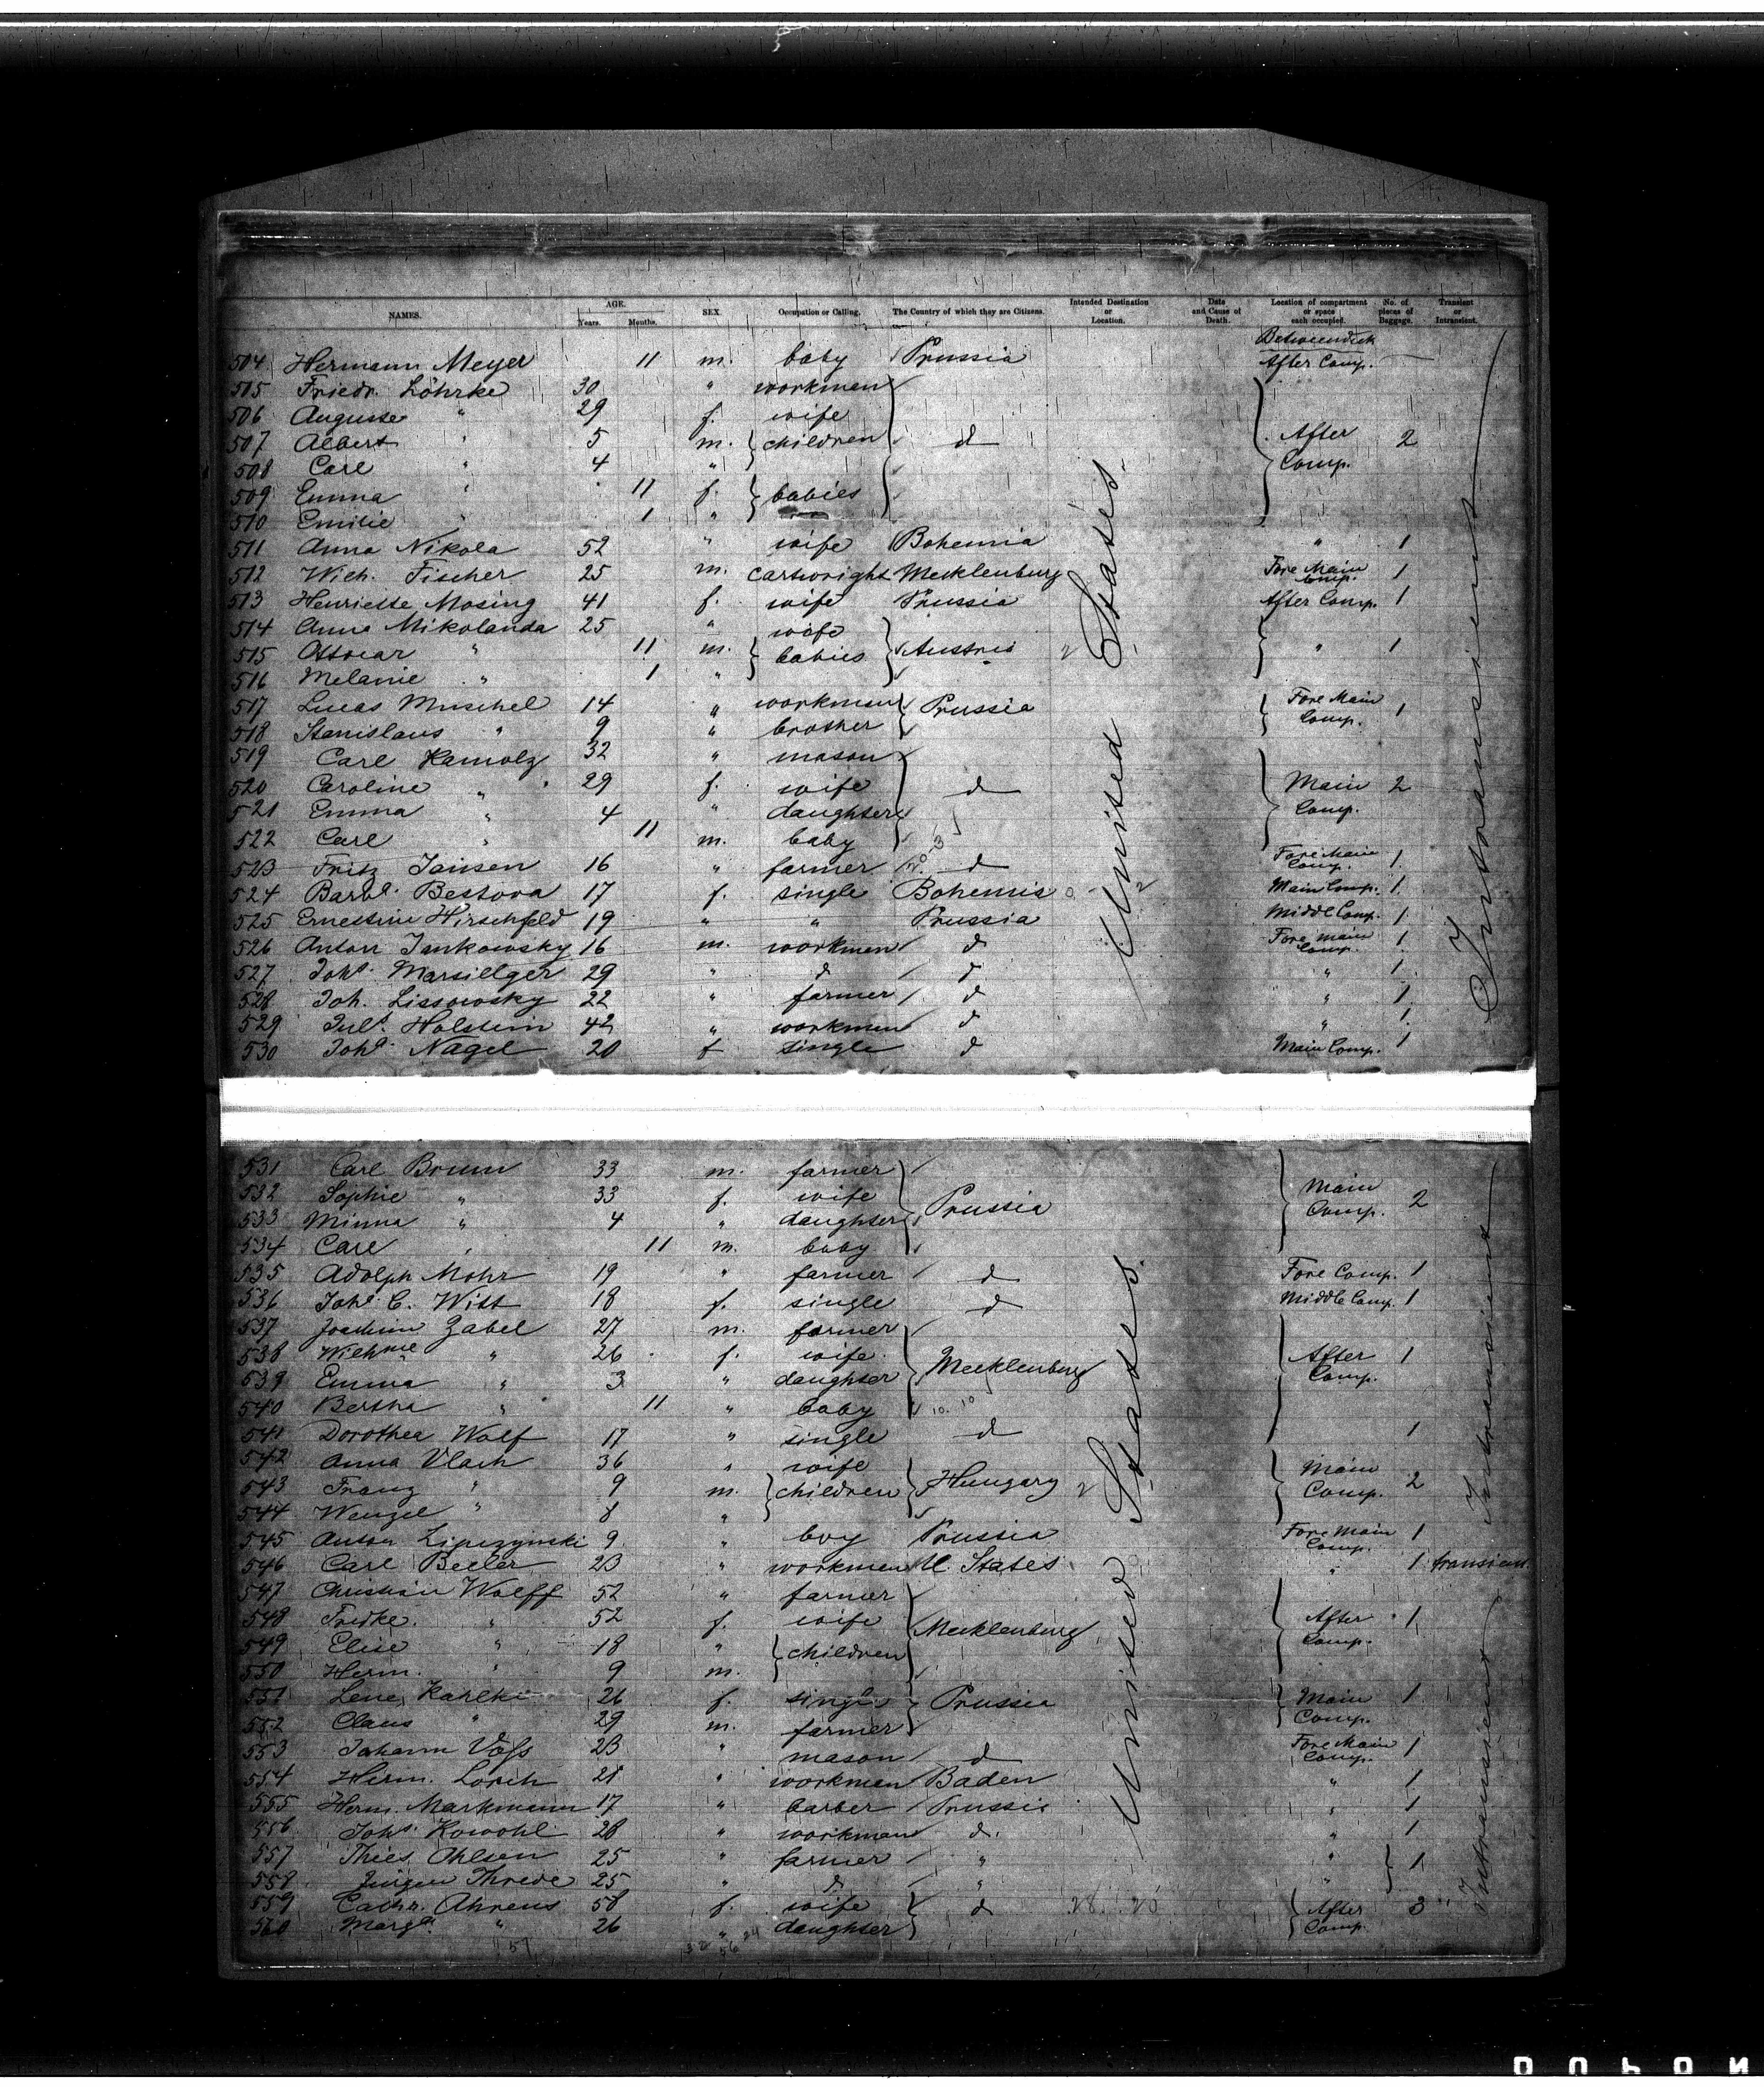 NAMES. AGE. Years. Months. SEX. Occupation or Calling. The Country of which they are Citizens. Intended Destination or Location. Date and Cause of Death. Location of compartment or space each occupied. No. of pieces of Baggage. Transient or Intransient.
Betweendeck
504 Hermann Meyer 11 m. baby Prussia After Comp.
505 Friedr. Löhrke 30 " workman
506 Auguste " 29 f. wife
507 Albert " 5 m. children d After Comp. 2
508 Carl " 4 "
509 Emma " 11 f. babies
510 Emilie " 1 "
511 Anna Nikola 52 " wife Bohemia " 1
512 Wilh. Fischer 25 m. cartwright Mecklenburg Fore Main Comp. 1
513 Henriette Mosing 41 f. wife Prussia After Comp. 1
514 Anna Mikolanda 25 " wife
515 Ottocar " 11 m. babies Austria " 1
516 Melanie " 1 "
517 Lucas Muschel 14 " workman Prussia Fore Main Comp. 1
518 Stanislaus " 9 " brother
519 Carl Kamolz 32 " mason
520 Caroline " 29 f. wife d Main Comp. 2
521 Emma " 4 " daughter
522 Carl " 11 m. baby
523 Fritz Jansen 16 " farmer d Fore Main Comp. 1
524 Barbª. Bestova 17 f. single Bohemia Main Comp. 1
525 Ernestine Hirschfeld 19 " " Prussia Middl Comp. 1
526 Anton Jankowsky 16 m. workman d Fore Main Comp. 1
527 Johs. Marsillger 29 " d d " 1
528 Joh. Lissowsky 22 " farmer d " 1
529 Juls. Holstein 42 " workman d " 1
530 Johª. Nagel 20 f single d Main Comp. 1
United States.
Intransient
531 Carl Brumm 33 m. farmer
532 Sophie " 33 f. wife Prussia Main Comp. 2
533 Minna " 4 " daughter
534 Carl " 11 m. baby
535 Adolph Mohr 19 " farmer d Fore Comp. 1
536 Johª. C. Witt 18 f. single d Middle Comp. 1
537 Joachim Zabel 27 m. farmer
538 Wilhme " 26 f. wife Mecklenburg After Comp. 1
539 Emma " 3 " daughter
540 Bertha " 11 " baby
541 Dorothea Wolf 17 " single d 1
542 Anna Vlach 36 " wife
543 Franz " 9 m. children Hungary Main Comp. 2
544 Wenzel " 8 "
545 Anton Lipczynski 9 " boy Prussia Fore Main Comp. 1
546 Carl Beeler 23 " workman U. States " 1 transient.
547 Christian Wolff 52 " farmer
548 Fredke. " 52 f. wife Mecklenburg After Comp. 1
549 Elise " 18 " children
550 Herm. " 9 m.
551 Lene Kahlke 26 f. single Prussia Main Comp. 1
552 Claus " 29 m. farmer
553 Johann Voss 23 " mason d Fore Main Comp. 1
554 Herm. Lorch 21 " workman Baden " 1
555 Herm. Markmann 17 " barber Prussia " 1
556 Johs. Kowohl 28 " workman d. " 1
557 Thies Ohlsen 25 " farmer " " 1
558 Jürgen Threde 25 " d " "
559 Cathr. Ahrens 58 f. wife d After Comp. 3
560 Margª. " 26 " daughter
United States.
Intransient
Intransient